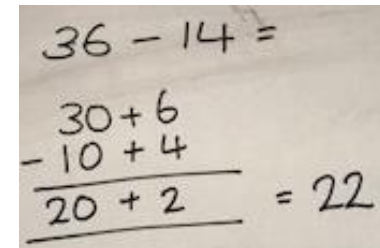 36 - 14 =
30 + 6
- 10 + 4
20 + 2 = 22